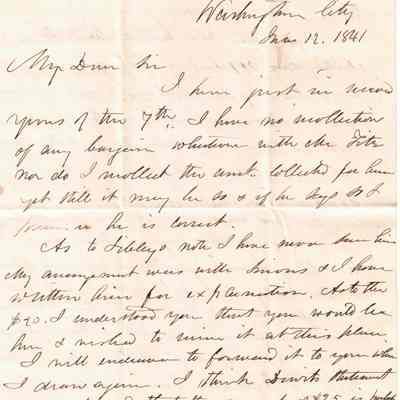 Washington City
June 12. 1841
My Dear Sir
I have just in recd
yours of the 7th. I have no recollection
of any bargain whatever with Mr Fitz
nor do I recollect the amt collected for him
yet still it may be so & if he says so I
he is correct.
As to Sibleys note I have never seen him
My arrangement was with Simons & I have
written him for explanation. As to the
$20. I understood you that you would be
here & wished to mine it at this place
I will endeavor to forward it to you when
I draw again. I think statement
$25 is